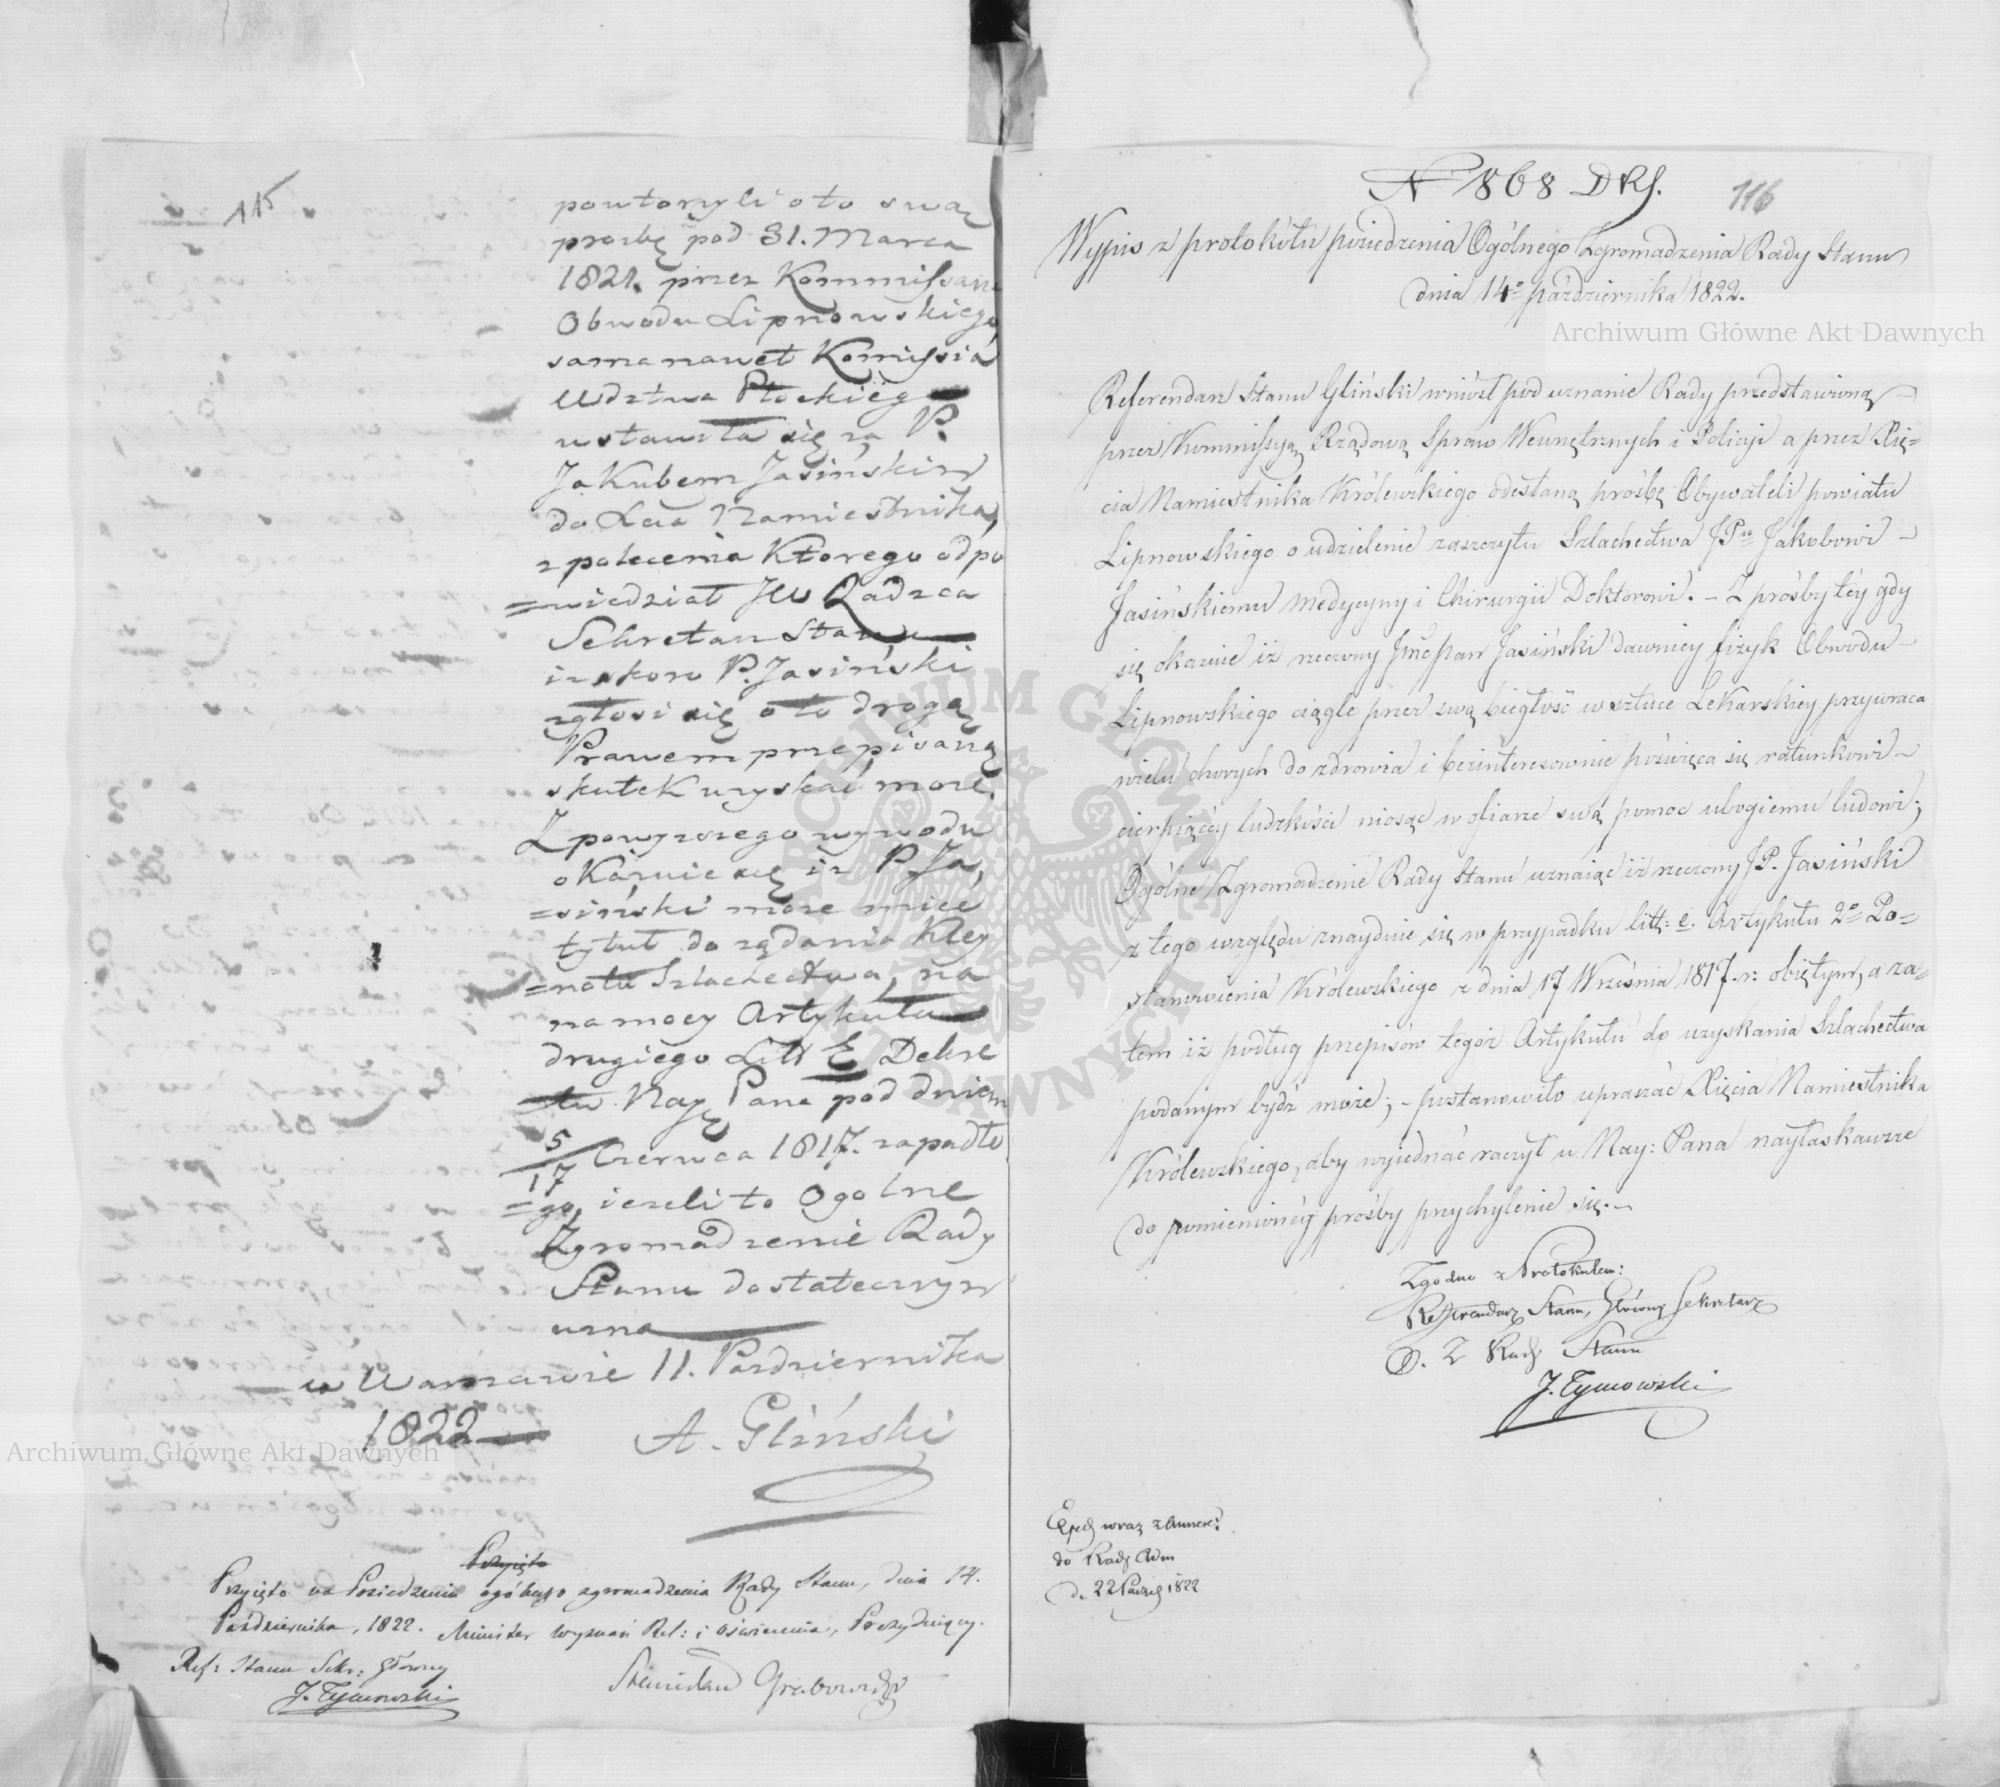 115
powtorzyli o to swą
prozbę pod 31. Marca
1821. przez Kommissarza
Obwodu Lipnowskiego,
sama nawet Komissia
Wdztwa Płockiego
wstawiła się za P.
Jakubem Jasińskim
do Xcia Namiestnika,
z polecenia Ktorego odpo
=wiedział JW Radzca
Sekretarz Stanu
iż skoro P. Jasiński
zgłosi się o to drogą
Prawem przepisaną
skutek uzyskać może.
Z powyzszego wywodu
okazuie się iż P. Ja,
=siński może mieć
tytuł do ządania Kley
=notu Szlachectwa, na
na mocy Artykułu
drugiego Litt E Dekre
tu Nayę Pana pod dniem
5/17 Czerwca 1817. zapadłe
=go, iezeli to Ogolne
Zgromadzenie Rady
Stanu dostatecznym
uzna
w Warszawie 11. Pazdziernika
1822
A. Gliński
Przyięto
Przyięto na Posiedzeniu ogólnego zgromadzenia Rady Stanu, dnia 14.
Października, 1822. Minister Wyznań Rel: i Oświecenia, Prezyduiący.
Ref: Stanu Sekr: Główny
J. Tymowski
Stanisław Grabowski
N 868 DRS.
116
Wypis z protokółu posiedzenia Ogólnego Zgromadzenia Rady Stanu
dnia 14o października 1822.
Referendarz Stanu Gliński wniósł pod uznanie Rady przedstawioną
przez Kommissyą Rządową Spraw Wewnętrznych i Policyi a przez Xię=
cia Namiestnika Królewskiego odesłaną prośbę Obywateli powiatu
Lipnowskiego o udzielenie zaszczytu Szlachectwa JPu Jakobowi
Jasińskiemu Medycyny i Chirurgii Doktorowi. – Z prośby téy gdy
się okazuie iż rzeczony Jmć pan Jasiński dawniey fizyk Obwodu
Lipnowskiego ciągle przez swą biegłość w sztuce Lekarskiey przywraca
wielu chorych do zdrowia i bezinteresownie poświęca się ratunkowi
cierpiącéy ludzkości niosąc w ofiarze swą pomoc ubogiemu ludowi;
Ogólne Zgromadzenie Rady Stanu uznaiąc iż rzeczony JP. Jasiński
z tego względu znayduie się w przypadku litt: e. Artykułu 2o Po=
stanowienia Królewskiego z dnia 17 Września 1817. r: obiętym, a za=
tem iż podług przepisów tegóż Artykułu do uzyskania Szlachectwa
podanym bydź może; – postanowiło upraszać Xięcia Namiestnika
Królewskiego, aby wyiednać raczył u Nay: Pana nayłaskawsze
do pomienionéy prośby przychylenie się. –
Zgodno z Protokułem:
Referendarz Stanu, Główny Sekretarz
Rady Stanu
J. Tymowski
Exped wraz z
do Rady Adm
d. 22 Paźdz 1822
Archiwum Główne Akt Dawnych
Archiwum Główne Akt Dawnych
ARCHIWUM GŁÓWNE AKT DAWNYCH